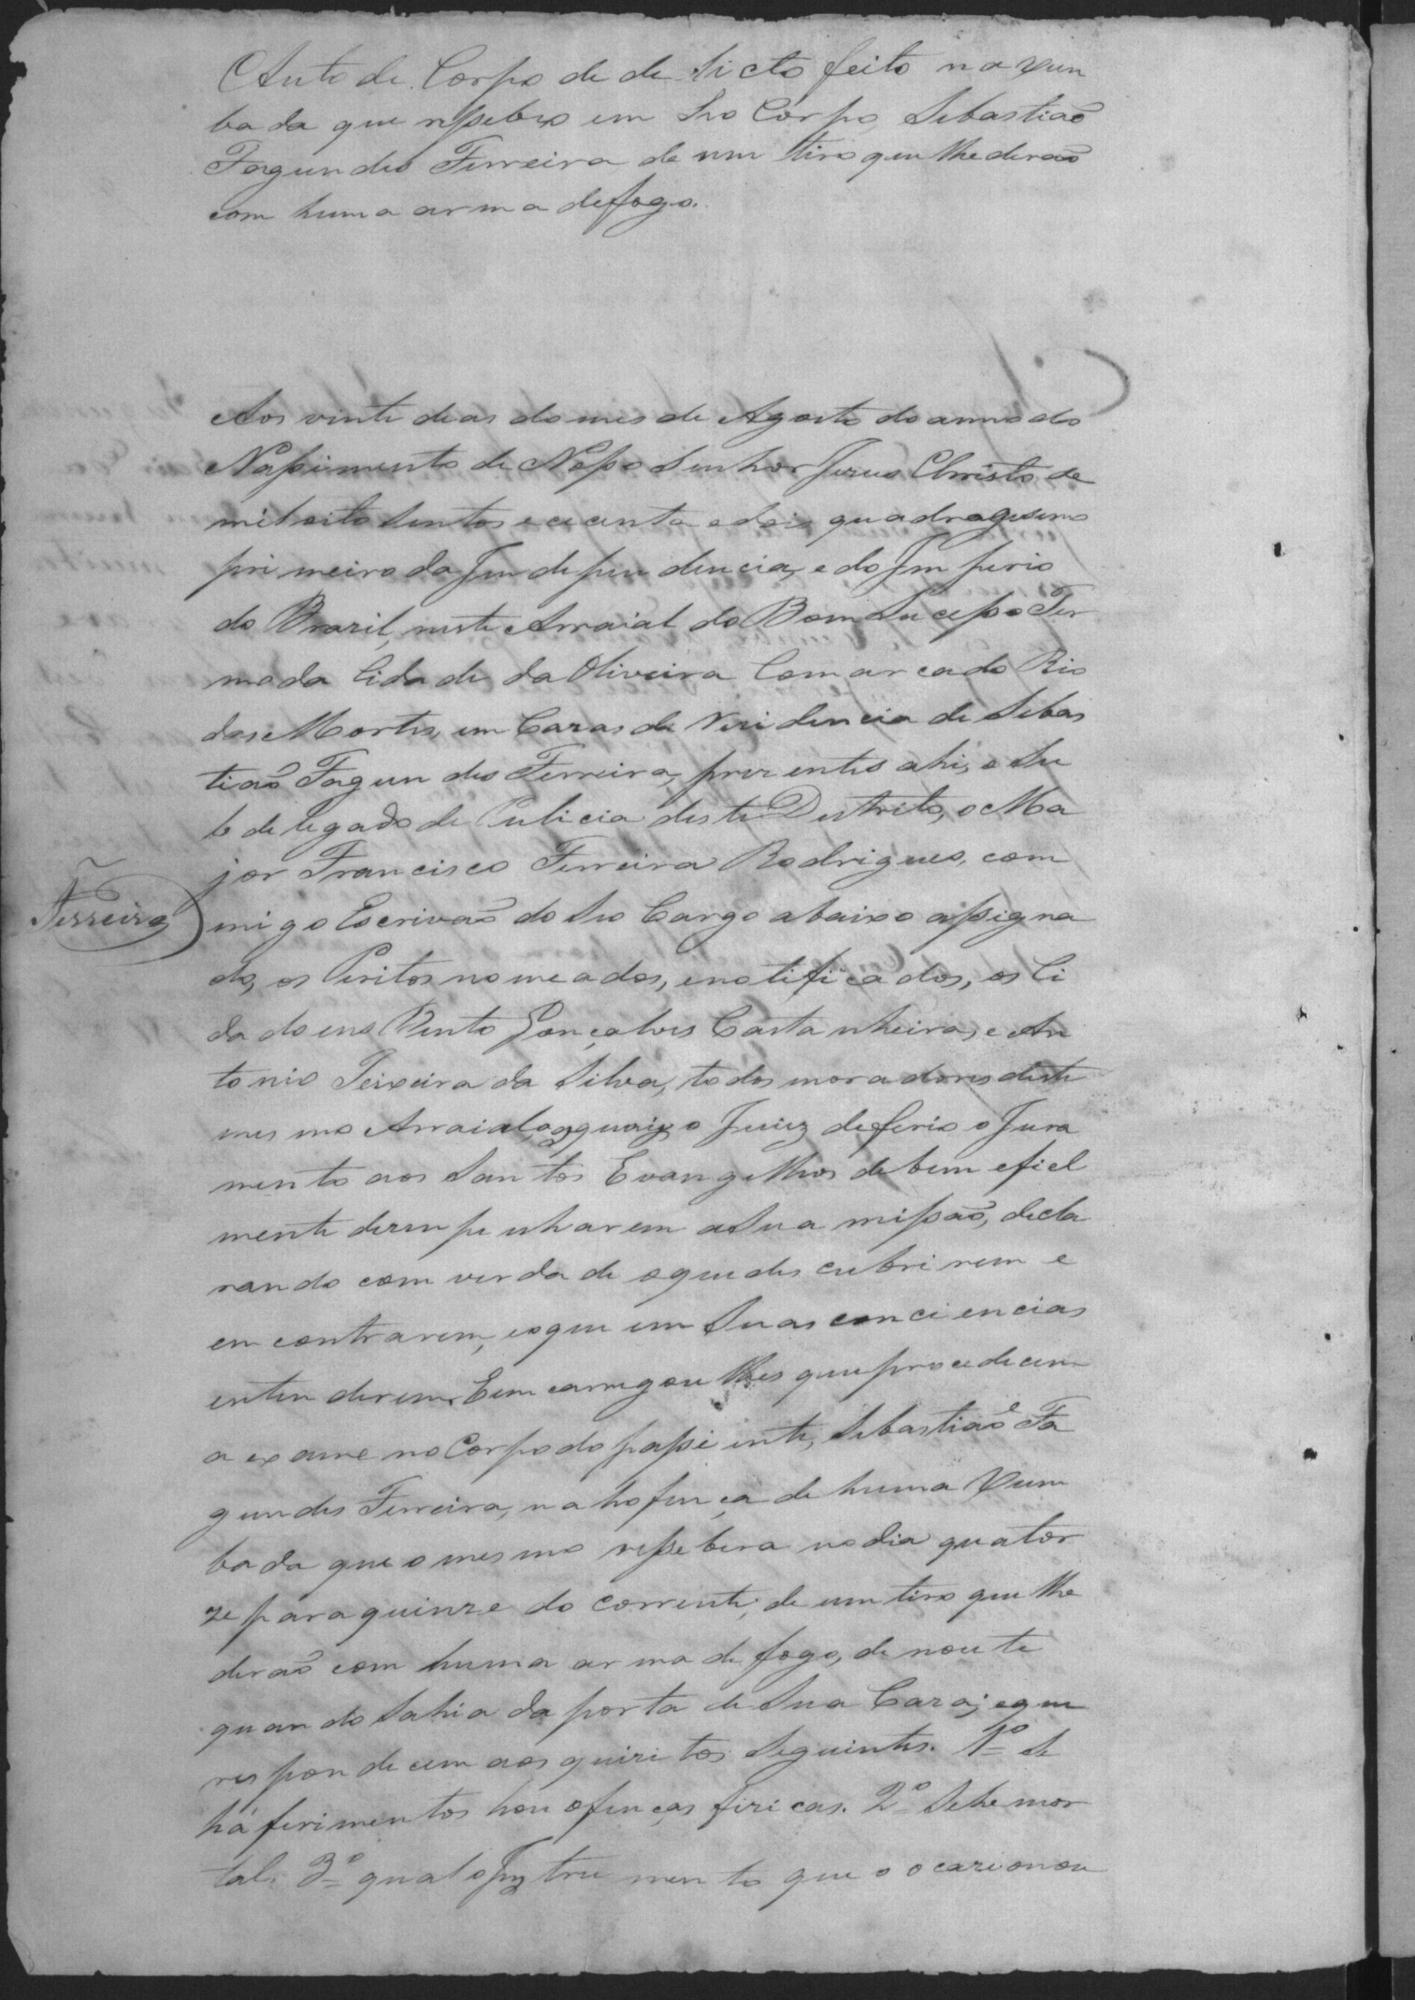 Auto de Corpo de de licto feito na xum
bada que reçebeo em Seo Corpo Sebastiaõ
Fagundes Ferreira de um tiro que lhe deraõ
com huma arma de fogo.
Aos vinte deas do mes de Agosto do anno do
Nassimento de Nosso Senhor Jezus Christo de
mil oito Sentos e cecenta e dois quadragesimo
primeiro da Jndependencia, e do Jmperio
do Brazil, neste Arraial do Bom Sucesso Ter
mo da Cidade da Oliveira Comarca do Rio
das Mortes, em Cazas de Rezidencia de Sebas
tiaõ Fagundes Ferreira, prezentes ahi, o Su
b delegado de Pulicia deste Destrito, o Ma
jor Francisco Ferreira Rodrigues, com
Ferreira
migo Escrivaõ do Seo Cargo abaixo assigna
do, os Peritos nomeados, e notificados, os Ci
dadoens Bento Gonçalves Castanheira, e An
tonio Teixeira da Silva, todos moradores deste
mesmo Arraial, os quaiz o Juiz deferio o Jura
mento aos Santos Evangelhos de bem e fiel
mente dezempenharem a Sua missaõ, decla
rando com verdade o que descubrirem e
encontrarem, e o que em Suas conciencias
entenderem. Eem carregou lhes que procedecem
a exame no Corpo do passiente, Sebastiaõ Fa
gundes Ferreira, na hofença de huma xum
bada que o mesmo ressebera no dia quator
ze para quinze do corrente, de um tiro que lhe
deraõ com huma arma de fogo, de noute
quando Sahia da porta de Sua Caza; e que
respondecem aos quizitos Seguintes. 1º Se
há ferimentos hou ofenças fizicas. 2º Se he mor
tal. 3º qual o Jnztrumento que o ocazionou